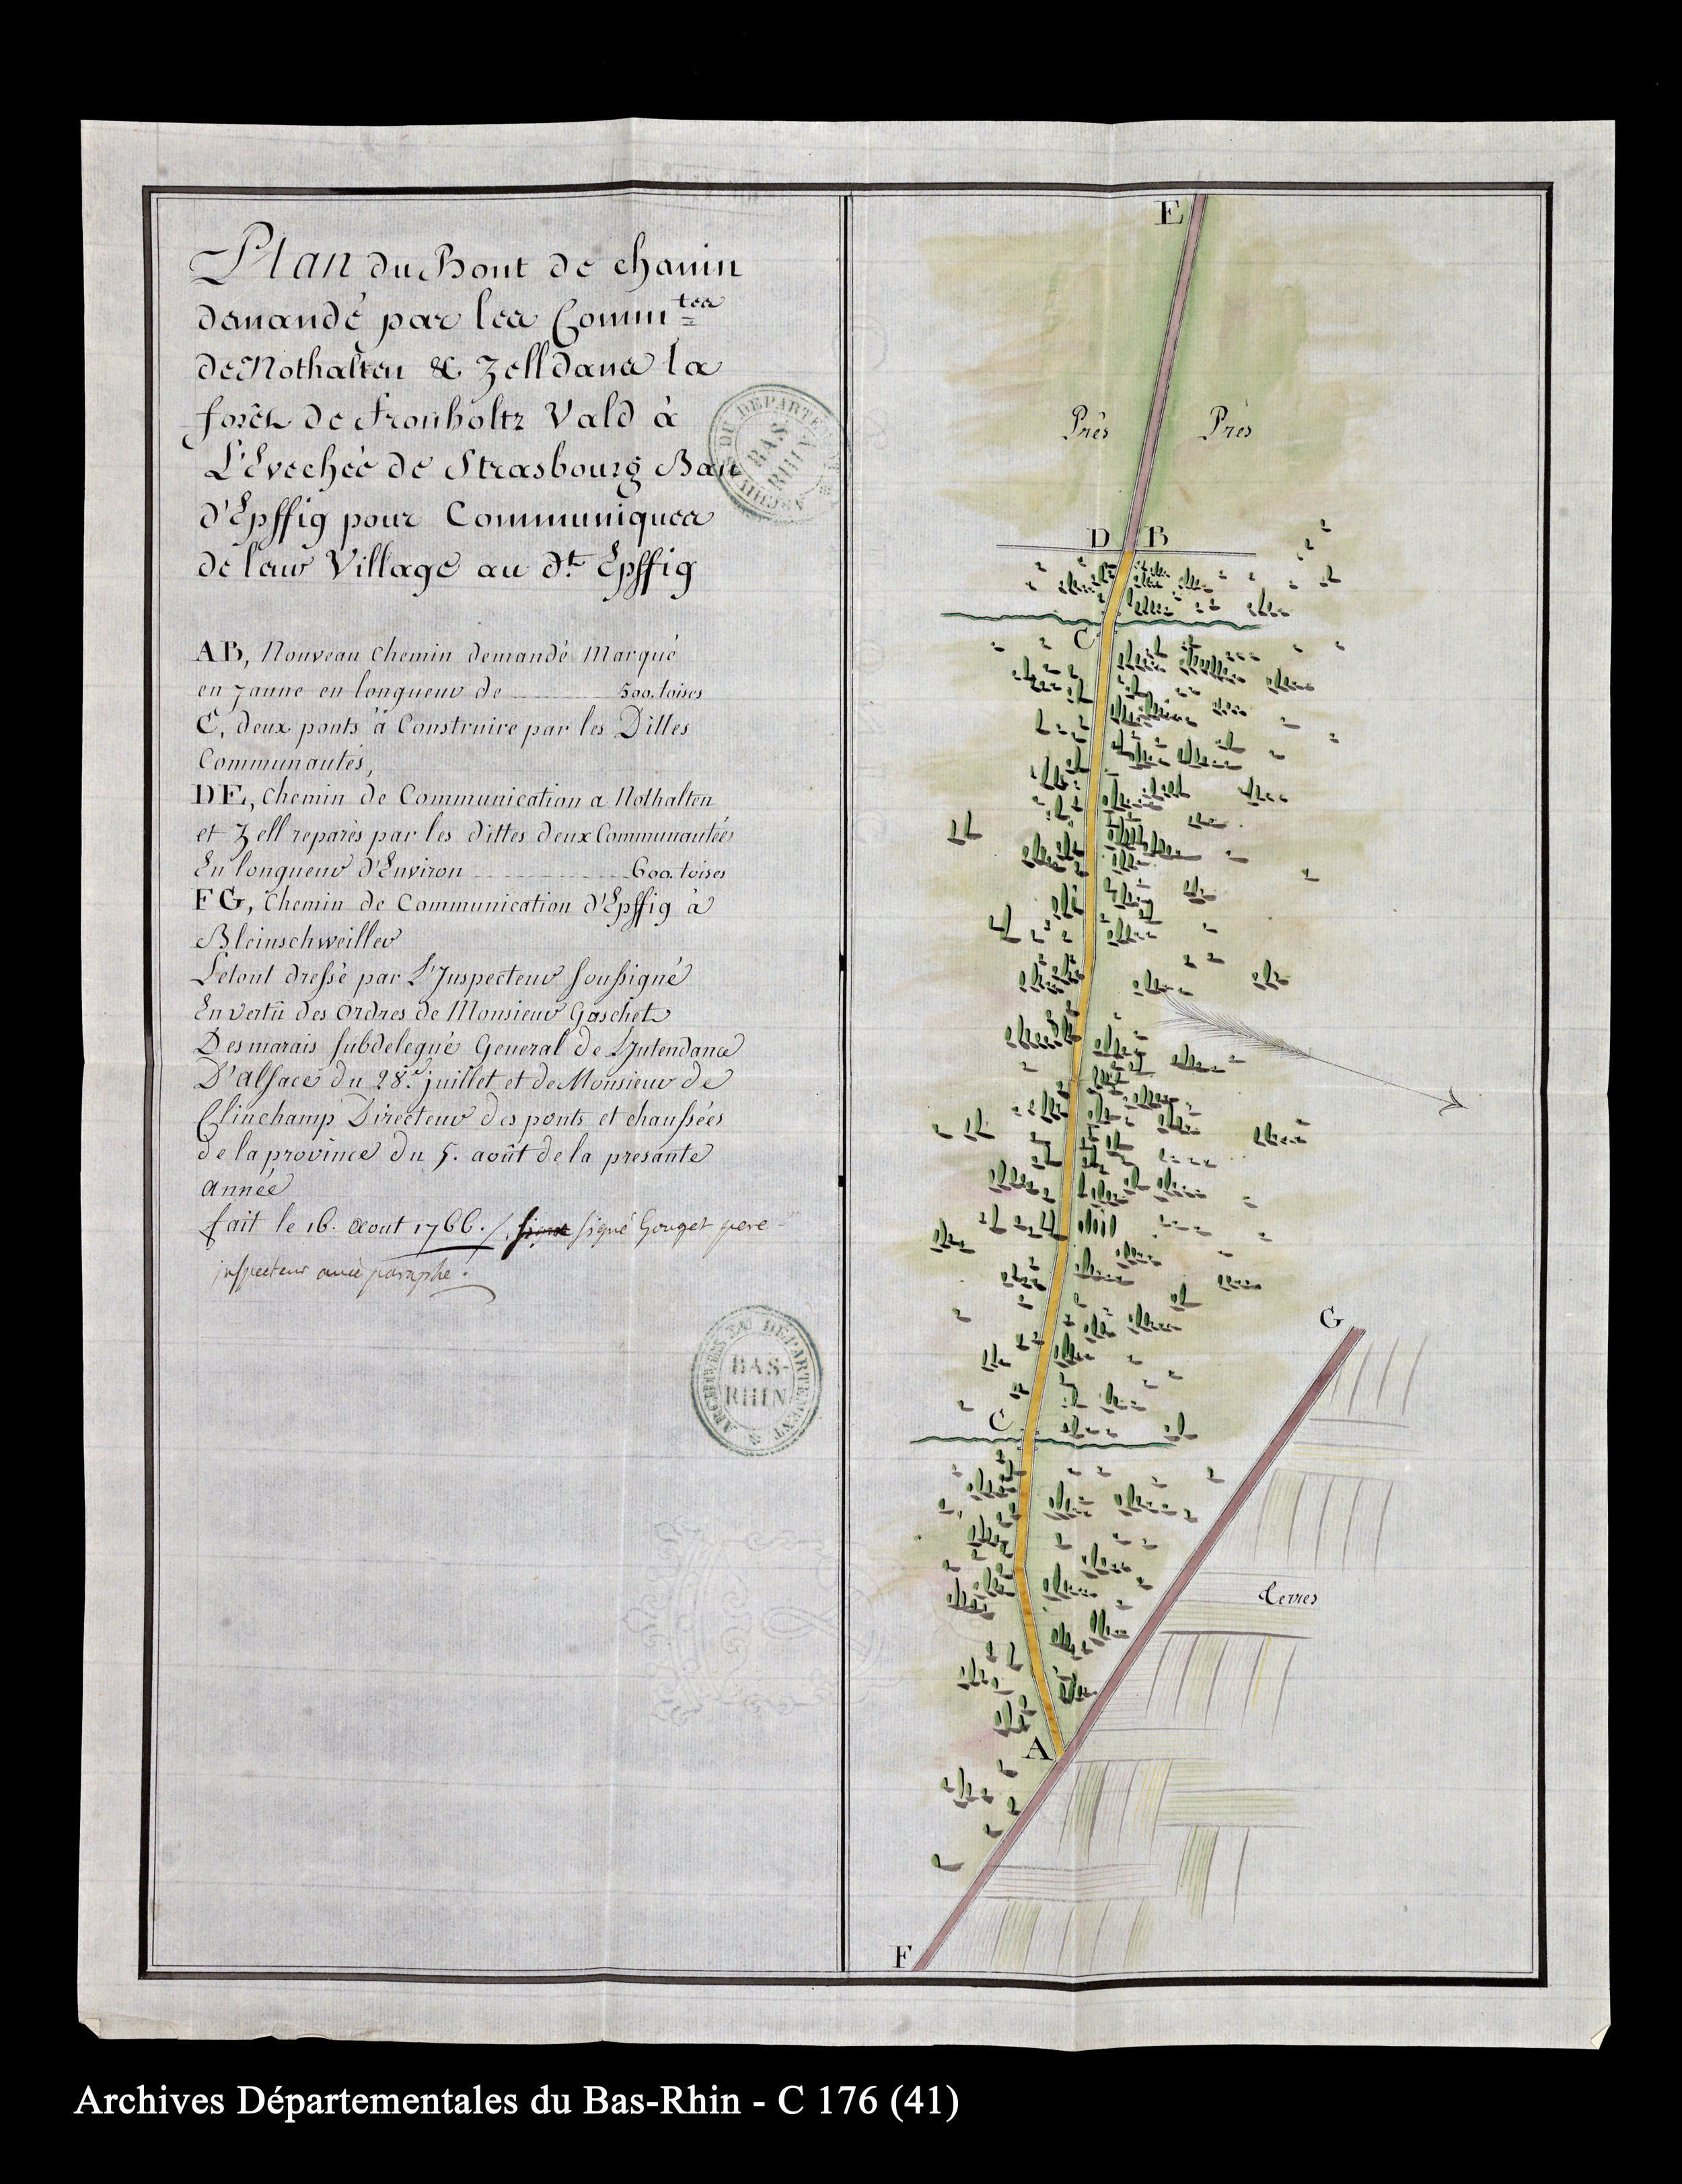 Plan du Bout de chemin
demandé par les Comm.tes
de Nothalten & Zell dans la
forêt de Fronholtz Vald à
L'Evecheé de Strasbourg Ban
d'Epffig pour Communiquer
de leur Village au d.t Epffig
AB, Nouveau Chemin demandé Marqué
en Jaune en longueur de ............ 500. toises
C, deux ponts à Construire par les Dittes
Communautés,
DE, Chemin de Communication a Nothalten
et Zell reparés par les dittes deux Communautées
En longueur d'Environ ............ 600. toises
FG, Chemin de Communication d'Epffig à
Bleinschweiller
Le tout dressé par L'Inspecteur soussigné
En vertû des Ordres de Monsieur Gaschet
Desmarais subdelegué General de L'Intendance
D'alsace du 28.e juillet et de Monsieur de
Clinchamp Directeur des ponts et chaussées
de la province du 5. août de la presante
année
fait le 16. aout 1766. /. signé Gouget pere
inspecteur avec paraphe.
ARCHIVES DU DEPARTEMENT
BAS-
RHIN
ARCHIVES DU DEPARTEMENT
BAS-
RHIN
E
Prés Prés
D B
C
G
C
terres
A
F
Archives Départementales du Bas-Rhin - C 176 (41)